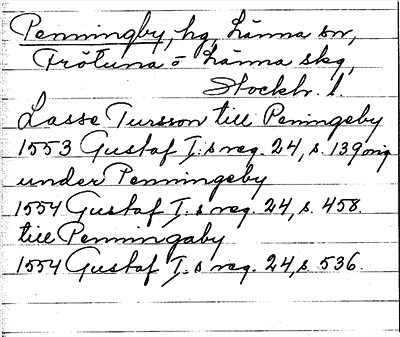 Penningby, hg, Länna sn,
Frötuna o Länna skg,
Stockh. l.
Lasse Tursson till Peningeby
1553 Gustaf I:s reg. 24, s. 139 orig
under Penningeby
1554 Gustaf I.s reg. 24, s. 458.
till Penningaby
1554 Gustaf I.s reg. 24, s. 536.